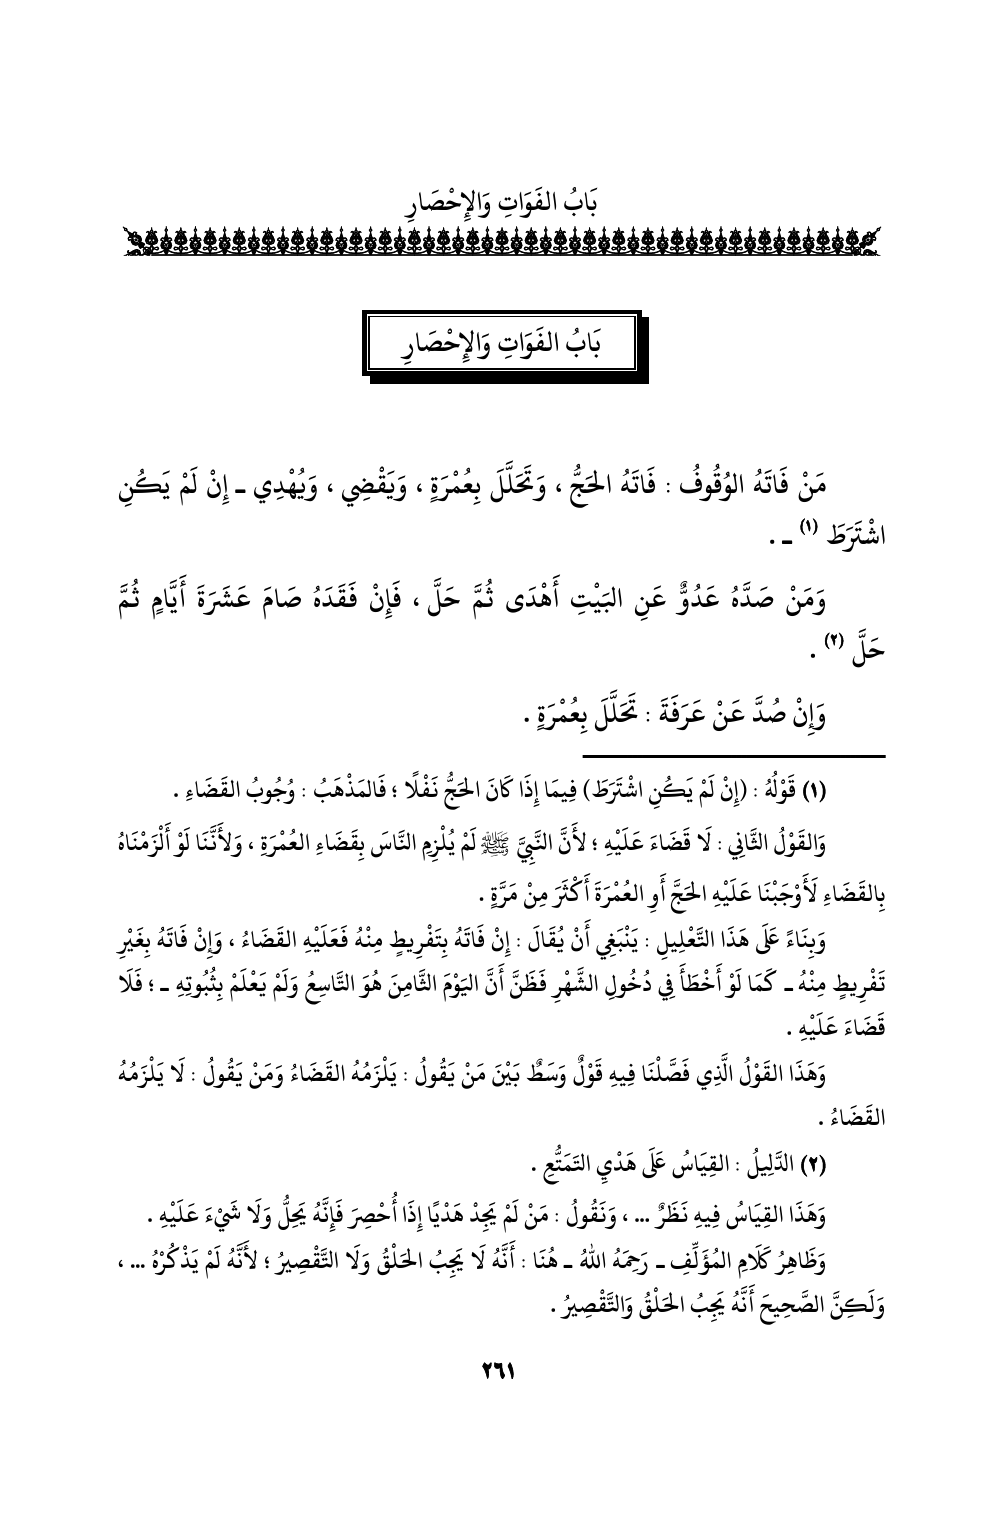 بَابُ الفَوَاتِ وَالإِحْصَارِ
بَابُ الفَوَاتِ وَالإِحْصَارِ
مَنْ فَاتَهُ الوُقُوفُ : فَاتَهُ الحَجُّ ، وَتَحَلَّلَ بِعُمْرَةٍ ، وَيَقْضِي ، وَيُهْدِي ـ إِنْ لَمْ يَكُنِ
اشْتَرَطَ (١) ـ .
وَمَنْ صَدَّهُ عَدُوٌّ عَنِ البَيْتِ أَهْدَى ثُمَّ حَلَّ ، فَإِنْ فَقَدَهُ صَامَ عَشَرَةَ أَيَّامٍ ثُمَّ
حَلَّ (٢) .
وَإِنْ صُدَّ عَنْ عَرَفَةَ : تَحَلَّلَ بِعُمْرَةٍ .
(١) قَوْلُهُ : (إِنْ لَمْ يَكُنِ اشْتَرَطَ) فِيمَا إِذَا كَانَ الحَجُّ نَفْلًا ؛ فَالمَذْهَبُ : وُجُوبُ القَضَاءِ .
وَالقَوْلُ الثَّانِي : لَا قَضَاءَ عَلَيْهِ ؛ لأَنَّ النَّبِيَّ ﷺ لَمْ يُلْزِمِ النَّاسَ بِقَضَاءِ العُمْرَةِ ، وَلأَنَّنَا لَوْ أَلْزَمْنَاهُ
بِالقَضَاءِ لَأَوْجَبْنَا عَلَيْهِ الحَجَّ أَوِ العُمْرَةَ أَكْثَرَ مِنْ مَرَّةٍ .
وَبِنَاءً عَلَى هَذَا التَّعْلِيلِ : يَنْبَغِي أَنْ يُقَالَ : إِنْ فَاتَهُ بِتَفْرِيطٍ مِنْهُ فَعَلَيْهِ القَضَاءُ ، وَإِنْ فَاتَهُ بِغَيْرِ
تَفْرِيطٍ مِنْهُ ـ كَمَا لَوْ أَخْطَأَ فِي دُخُولِ الشَّهْرِ فَظَنَّ أَنَّ اليَوْمَ الثَّامِنَ هُوَ التَّاسِعُ وَلَمْ يَعْلَمْ بِثُبُوتِهِ ـ ؛ فَلَا
قَضَاءَ عَلَيْهِ .
وَهَذَا القَوْلُ الَّذِي فَصَّلْنَا فِيهِ قَوْلٌ وَسَطٌ بَيْنَ مَنْ يَقُولُ : يَلْزَمُهُ القَضَاءُ وَمَنْ يَقُولُ : لَا يَلْزَمُهُ
القَضَاءُ .
(٢) الدَّلِيلُ : القِيَاسُ عَلَى هَدْيِ التَمَتُّعِ .
وَهَذَا القِيَاسُ فِيهِ نَظَرٌ ... ، وَنَقُولُ : مَنْ لَمْ يَجِدْ هَدْيًا إِذَا أُحْصِرَ فَإِنَّهُ يَحِلُّ وَلَا شَيْءَ عَلَيْهِ .
وَظَاهِرُ كَلَامِ المُؤَلِّفِ ـ رَحِمَهُ اللهُ ـ هُنَا : أَنَّهُ لَا يَجِبُ الحَلْقُ وَلَا التَّقْصِيرُ ؛ لأَنَّهُ لَمْ يَذْكُرْهُ ... ،
وَلَكِنَّ الصَّحِيحَ أَنَّهُ يَجِبُ الحَلْقُ وَالتَّقْصِيرُ .
٢٦١